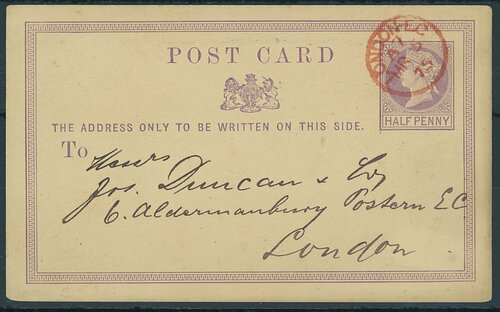 POST CARD
LONDON.E.C
HALFPENNY
THE ADDRESS ONLY TO BE WRITTEN ON THIS SIDE.
To
Messrs
Jos. Duncan & Co
6. Aldermanbury Postern E.C.
London.